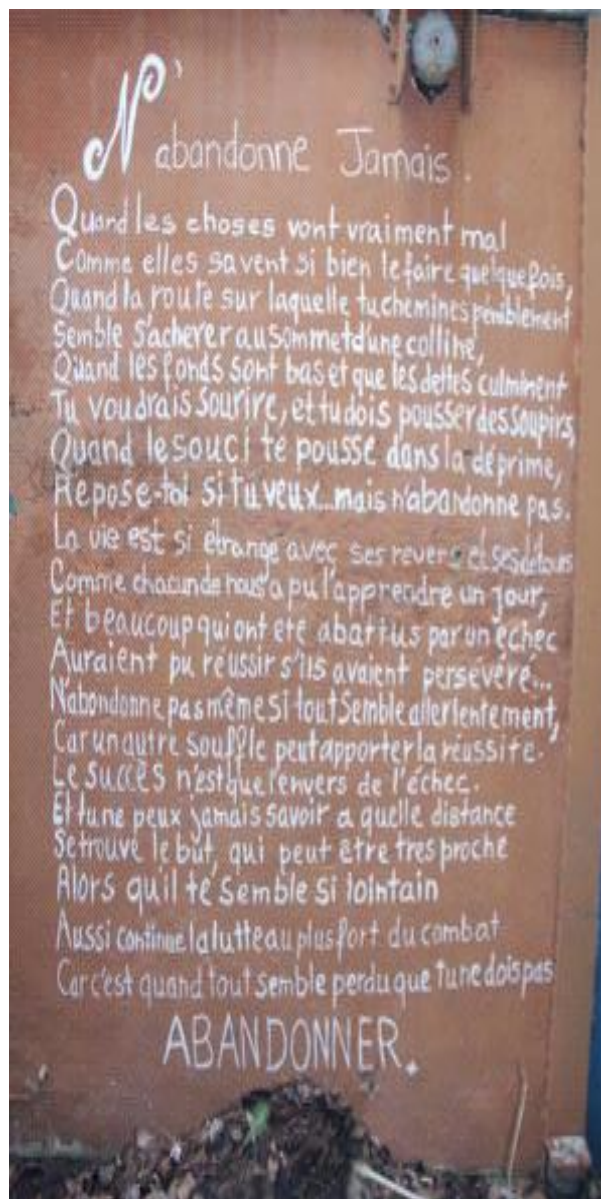 N'abandonne Jamais.
Quand les choses vont vraiment mal
Comme elles savent si bien le faire quelque fois,
Quand la route sur laquelle tu chemines péniblement
Semble s'achever au sommet d'une colline,
Quand les fonds sont bas et que les dettes culminent
Tu voudrais sourire, et tu dois pousser des soupirs,
Quand le souci te pousse dans la déprime,
Repose-toi si tu veux...mais n'abandonne pas.
La vie est si étrange avec ses revers et ses détours
Comme chacun de nous a pu l'apprendre un jour,
Et beaucoup qui ont été abattus par un échec
Auraient pu réussir s'ils avaient persévéré...
N'abandonne pas même si tout semble aller lentement,
Car un autre souffle peut apporter la réussite.
Le succès n'est que l'envers de l'échec.
Et tu ne peux jamais savoir a quelle distance
Se trouve le but, qui peut être tres proche
Alors qu'il te semble si lointain
Aussi continue la lutte au plus fort du combat
Car c'est quand tout semble perdu que tu ne dois pas
ABANDONNER.